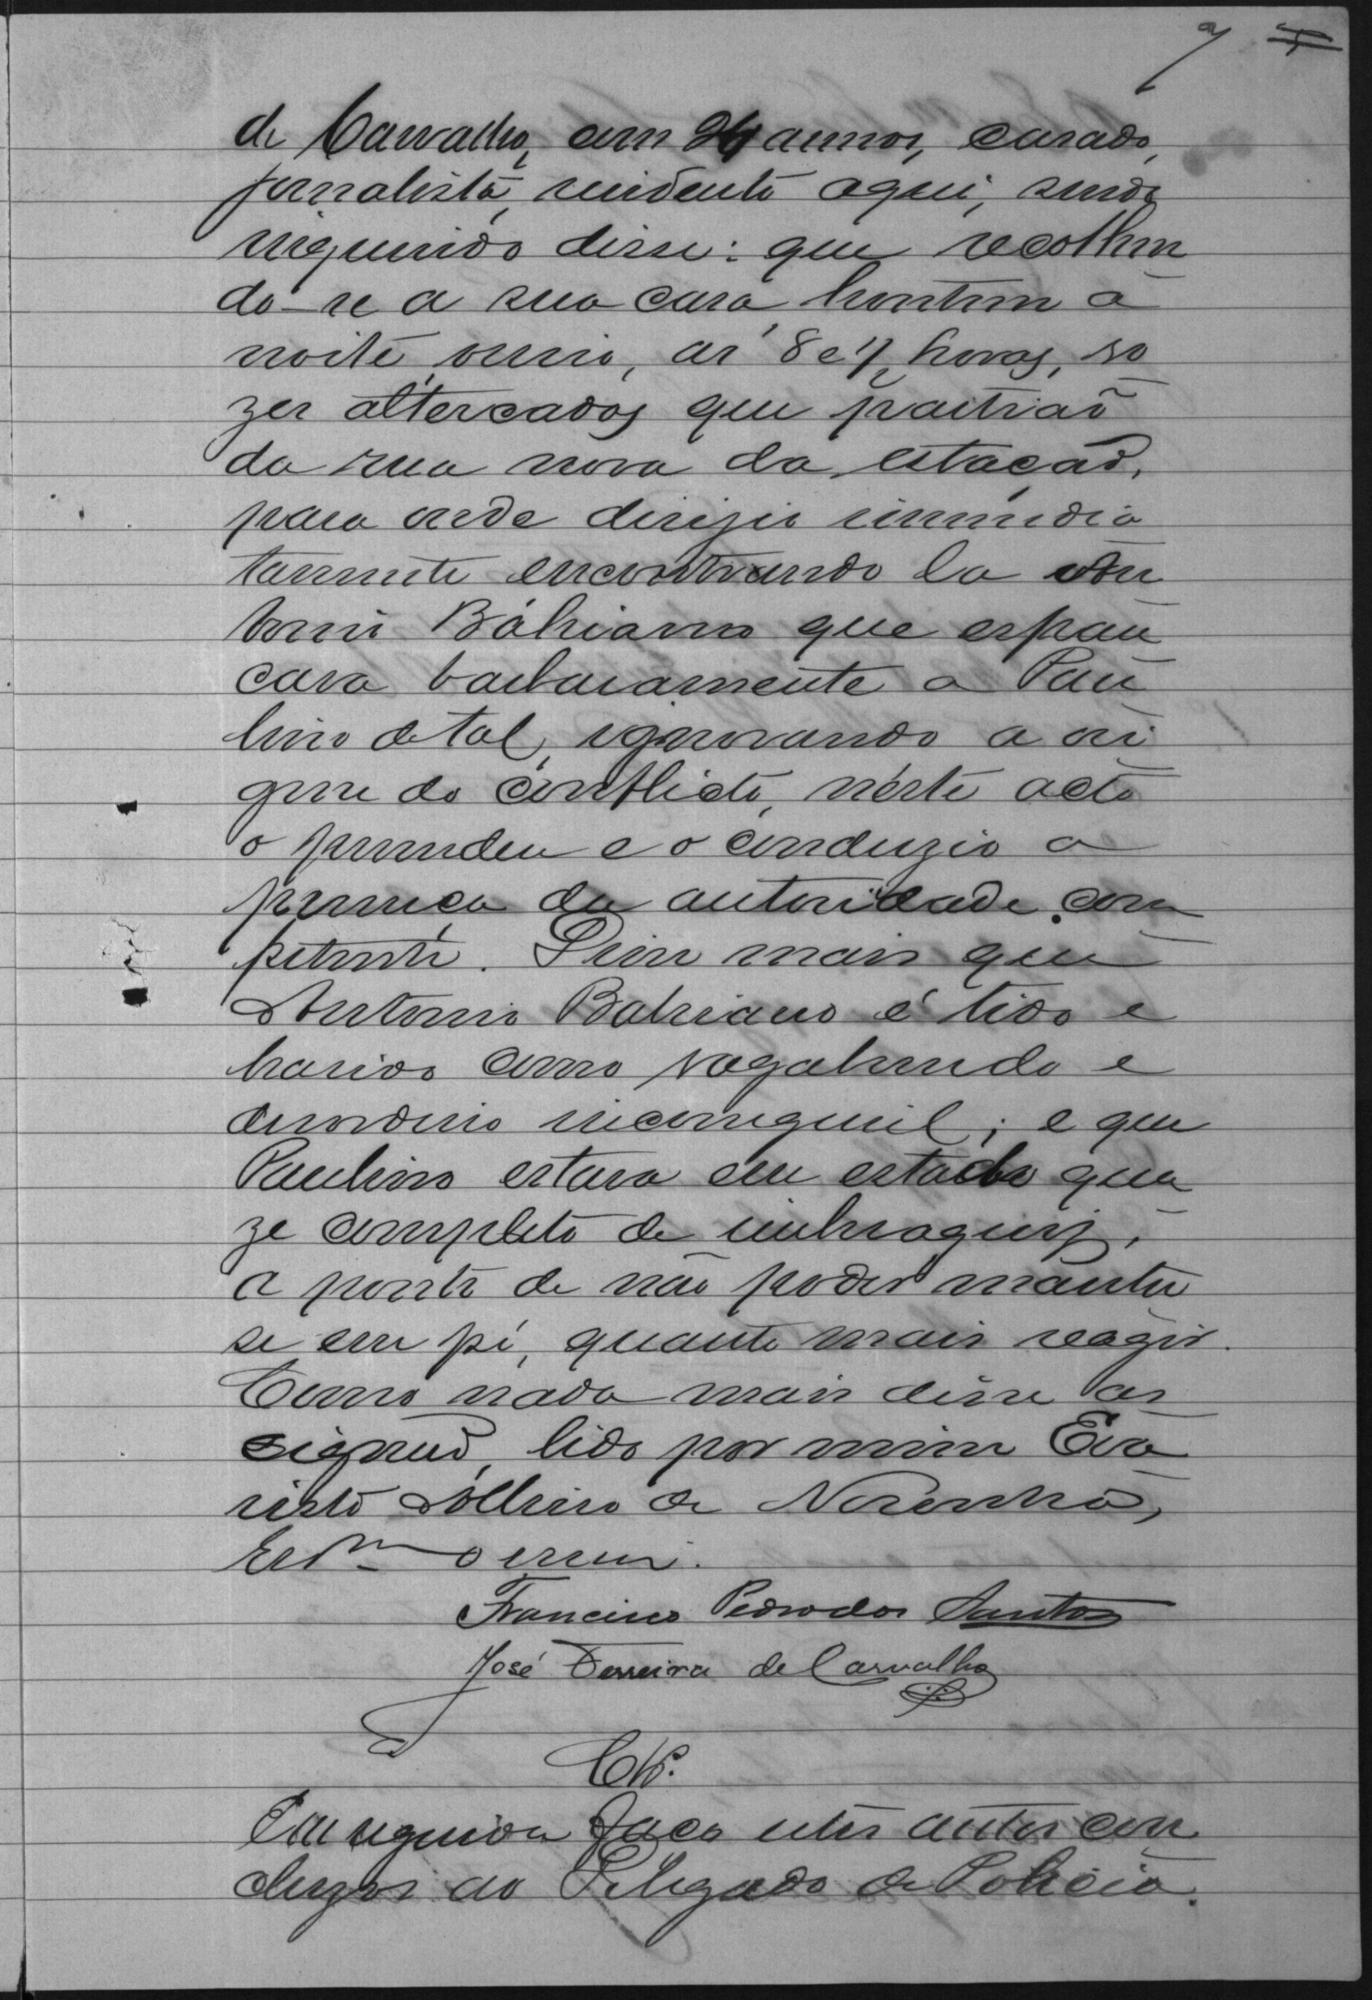 7
de Carvalho, com 24 annos, casado,
jornalista, residente aqui, sendo
inquirido disse: que recolhen
do-se a sua casa, hontem á
noite, ouvio, as 8 e ½ horas, vo
zes altercados que partião
da rua nova da estação,
para onde dirigio immedia
tamente encontrando la An
tonio Bahiano que espan
cava barbaramente a Pau
lino de tal, ignorando a ori
gem do conflicto, néste acto
o prendeu e o conduzio a
presença da autoridade com
petente. Disse mais que
Antonio Bahiano é tido e
havido como vagabundo e
desordeiro incorregivel; e que
Paulino estava em estado qua
ze completo de embriaguez,
a ponto de não poder manter
se em pé, quanto mais reagir.
Como nada mais disse as
signou, lido por mim Eva
risto de Noronha,
Esc.m o escrevi.
Francisco Pedro dos Santos
José Ferreira de Carvalho
Cls.
Em seguida faço estes autos con
cluzos ao Delegado de Policia.